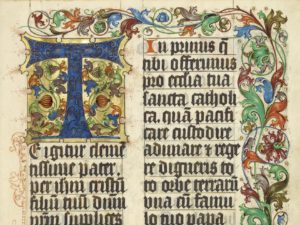 T
E igitur clemē
tissime pater,
per ihm cristū
filiū tuū dn̄m
nr̄m supplices
In primis q̄
tibi offerimus
pro ecc̄ia tua
sancta catholi
ca, quā pacifi
care custodire
adunare et rege
re digneris to
to orbe terrarū
vna cū famu
lo tuo papa